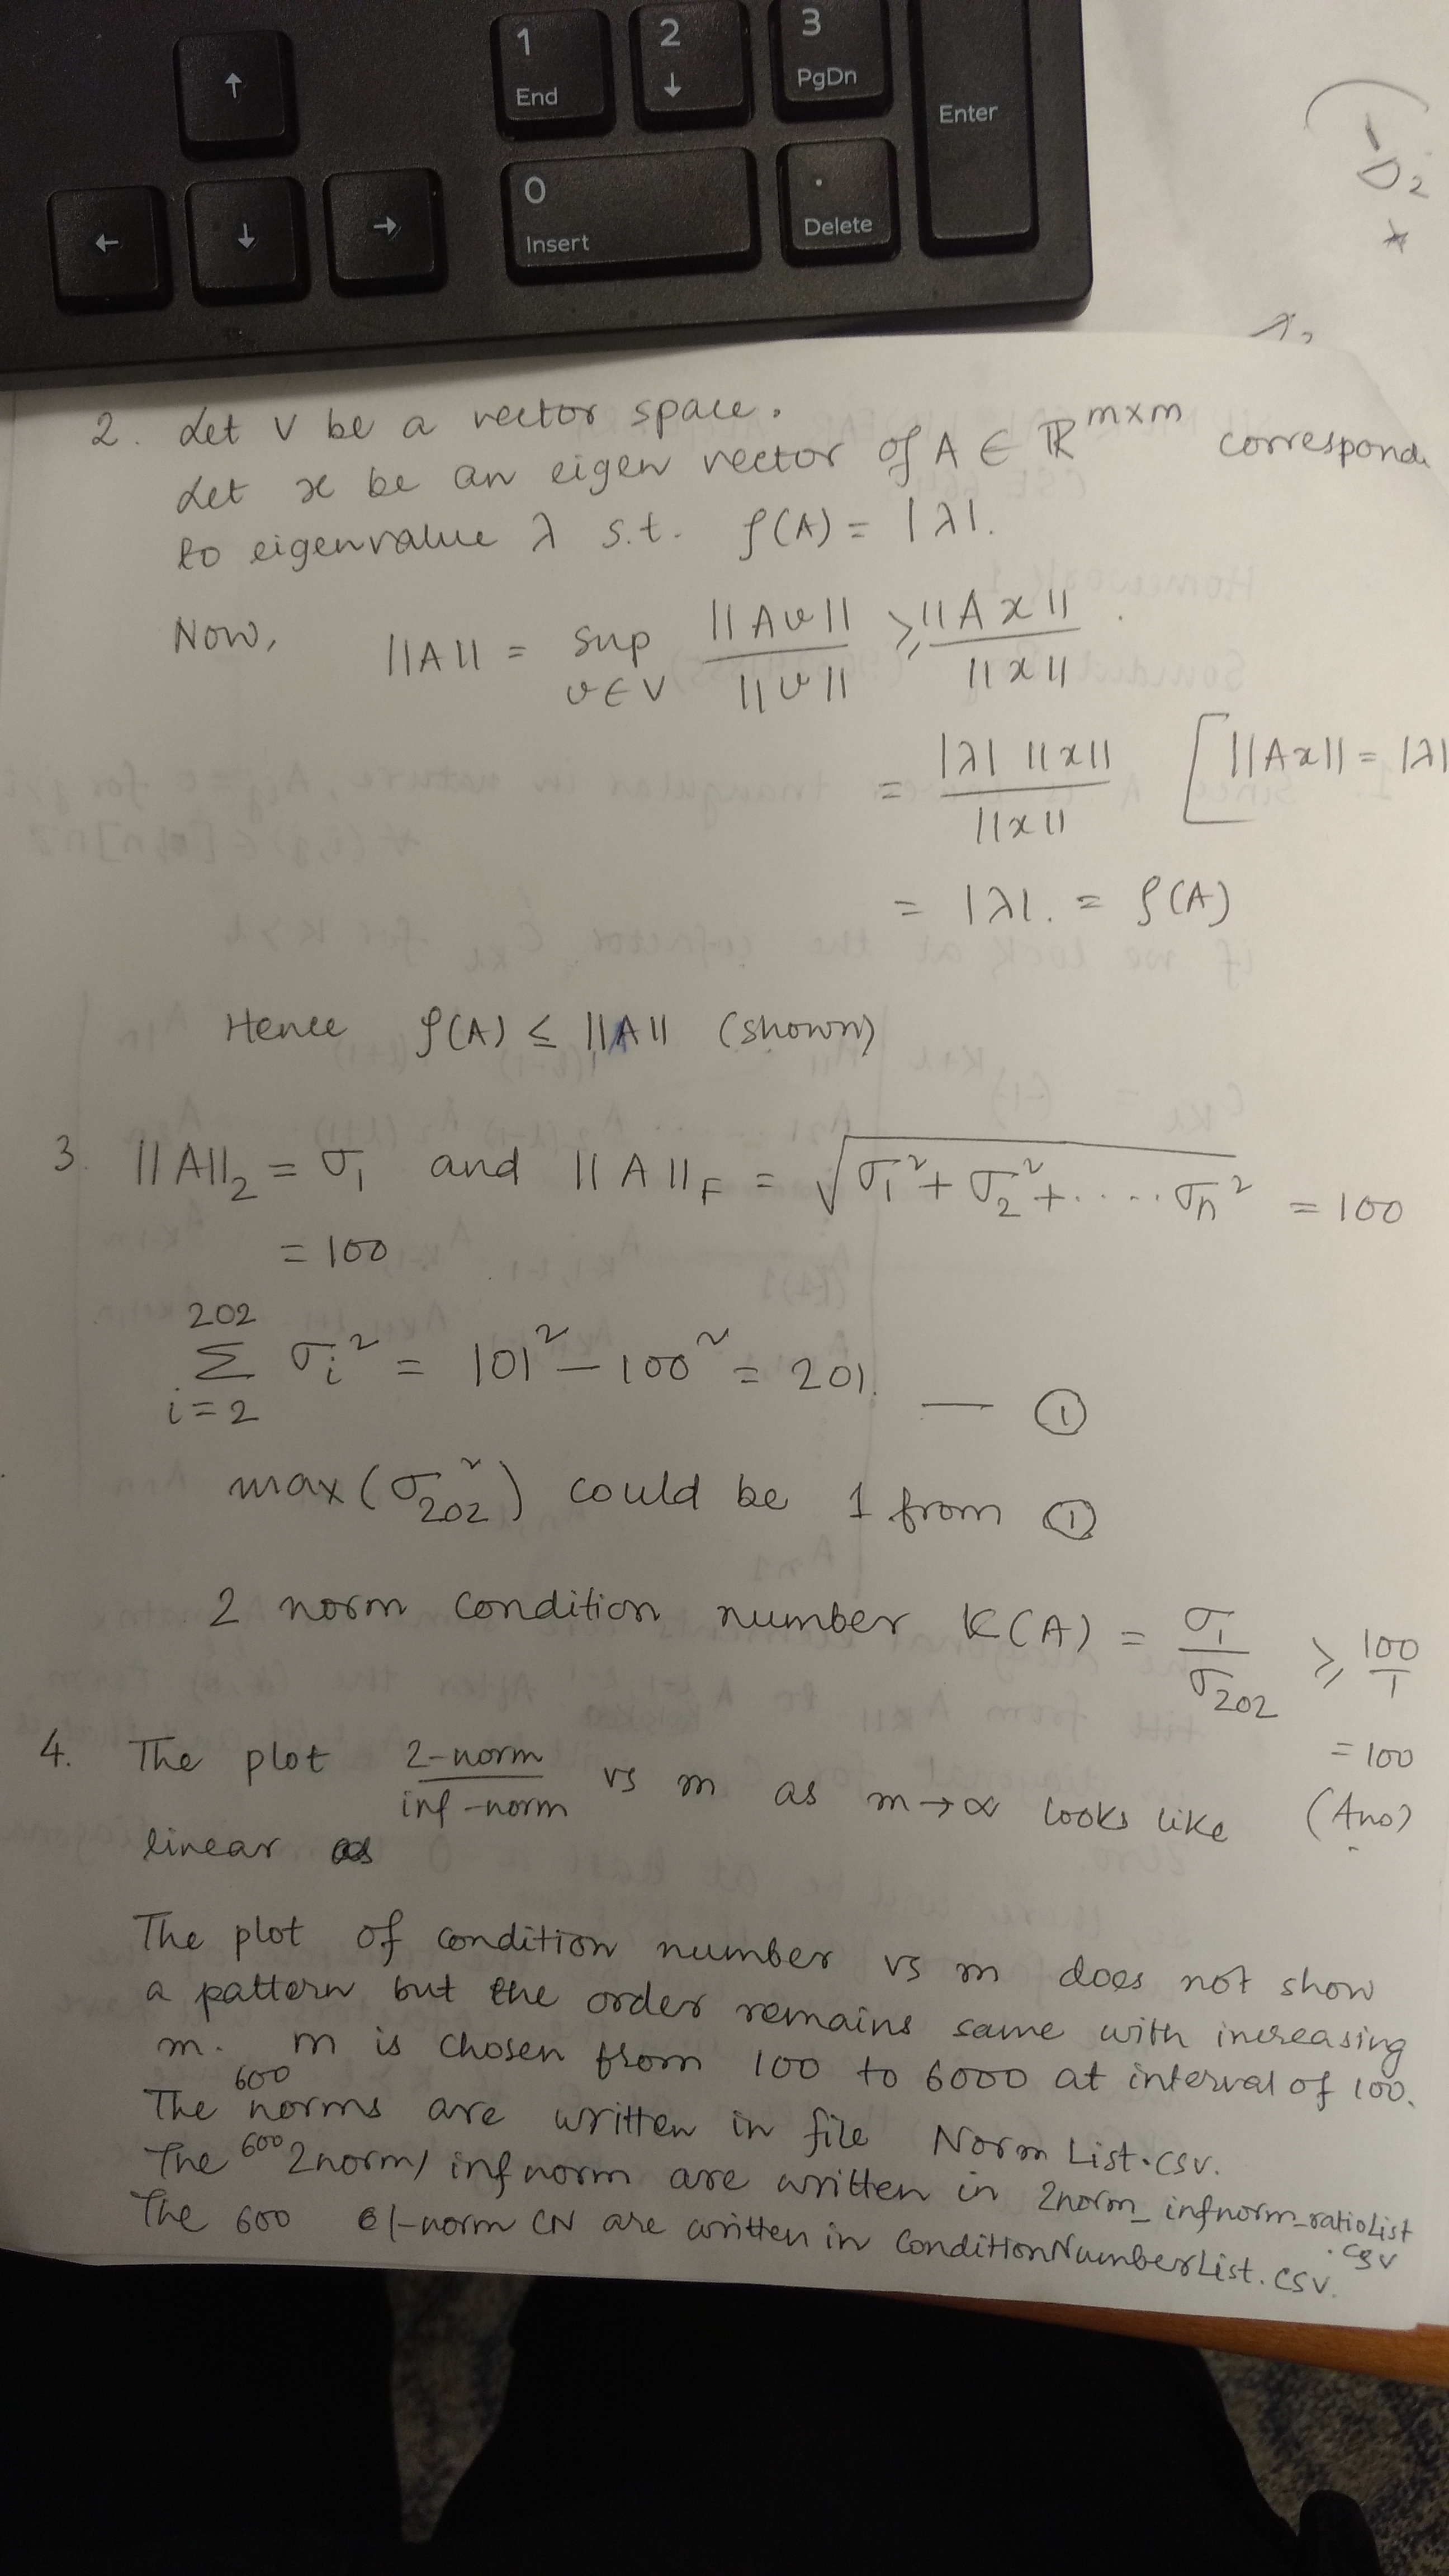 ↑
1
End
2
↓
3
PgDn
Enter
←
↓
→
0
Insert
.
Delete
2. Let V be a vector space.
Let x be an eigen vector of A ∈ ℝ^{m×m} correspond
to eigenvalue λ s.t. ρ(A) = |λ|.
Now, ||A|| = sup_{v∈V} ||Av|| / ||v|| ≥ ||Ax|| / ||x||
= |λ| ||x|| / ||x|| [||Ax|| = |λ|
= |λ|. = ρ(A)
Hence ρ(A) ≤ ||A|| (shown)
3. ||A||₂ = σ₁ and ||A||_F = √(σ₁² + σ₂² + ..... σₙ²) = 100
= 100
∑_{i=2}^{202} σᵢ² = 101² − 100² = 201. — ①
max(σ₂₀₂²) could be 1 from ①
2 norm condition number K(A) = σ₁ / σ₂₀₂ ≥ 100 / 1
= 100
(Ans)
4. The plot 2-norm / inf-norm vs m as m→∞ looks like
linear as
The plot of condition number vs m does not show
a pattern but the order remains same with increasing
m. m is chosen from 100 to 6000 at interval of 100.
The 600 norms are written in file Norm List.csv.
The 600 2norm/infnorm are written in 2norm_infnorm_ratioList.csv
The 600 -norm CN are written in ConditionNumberList.csv.